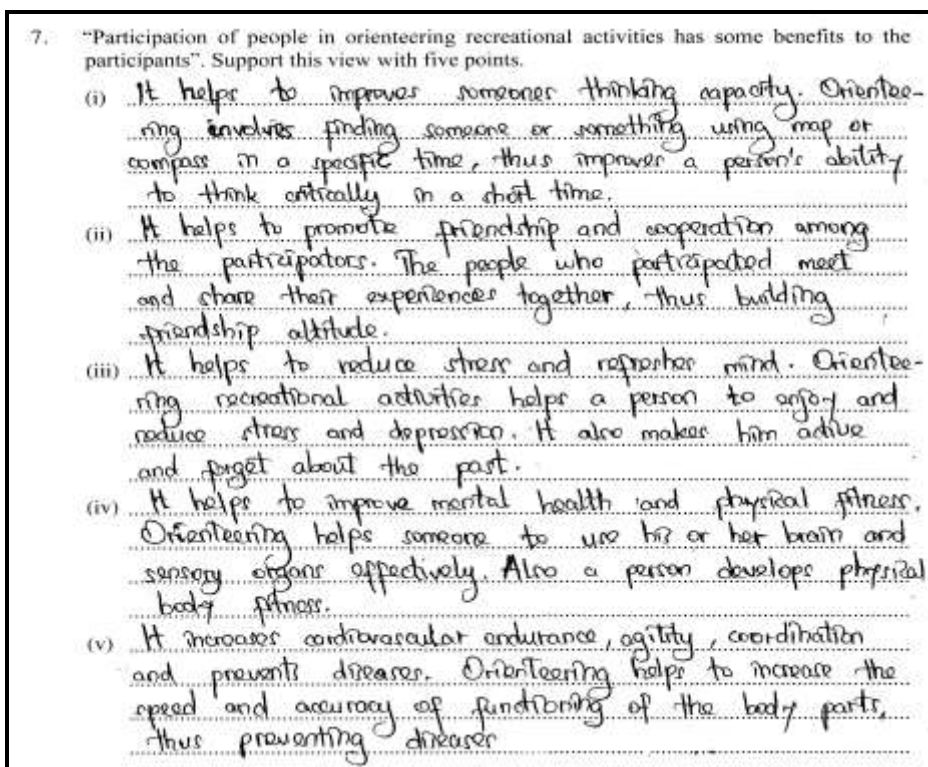 7. "Participation of people in orienteering recreational activities has some benefits to the
participants". Support this view with five points.
(i) It helps to improves someones thinking capacity. Orientee-
ring involves finding someone or something using map or
compass in a specific time, thus improves a person's ability
to think critically in a short time.
(ii) It helps to promote friendship and cooperation among
the participators. The people who participated meet
and share their experiences together, thus building
friendship attitude.
(iii) It helps to reduce stress and refreshes mind. Orientee-
ring recreational activities helps a person to enjoy and
reduce stress and depression. It also makes him active
and forget about the past.
(iv) It helps to improve mental health and physical fitness.
Orienteering helps someone to use his or her brain and
sensory organs effectively. Also a person develops physical
body fitness.
(v) It increases cardiovascular endurance, agility, coordination
and prevents diseases. Orienteering helps to increase the
speed and accuracy of functioning of the body parts,
thus preventing diseases